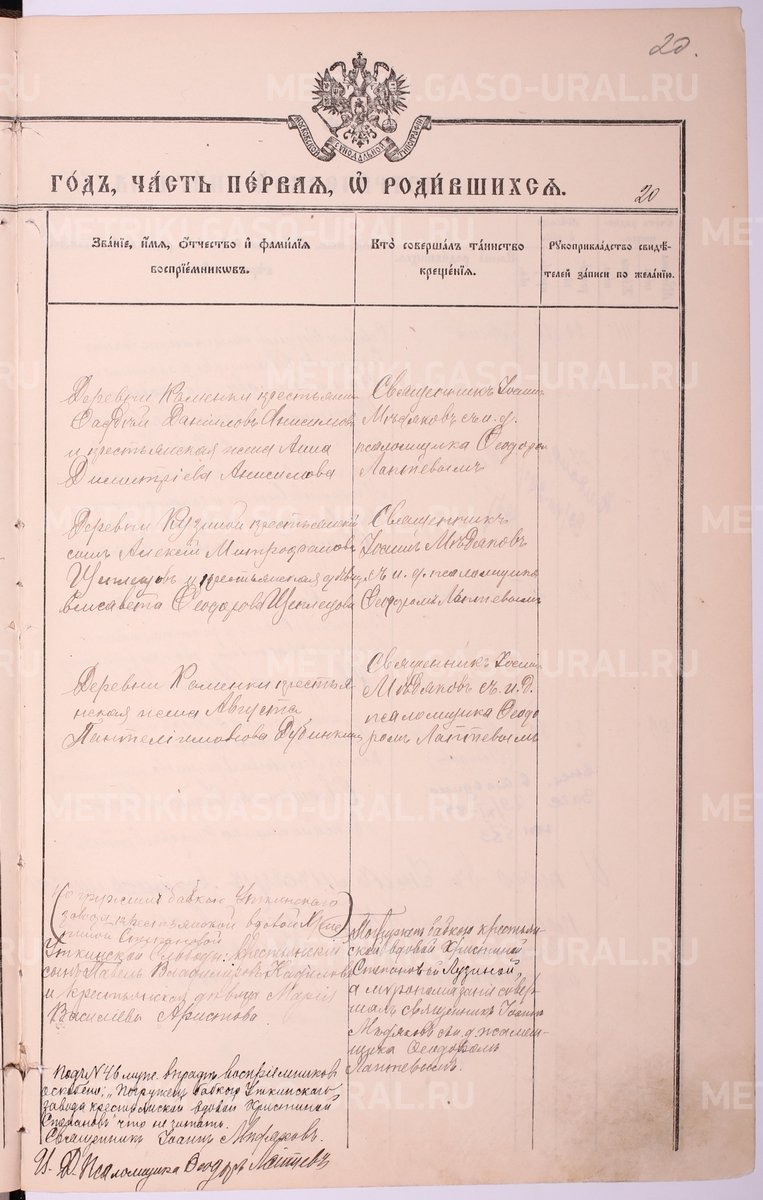 20.
МОСКОВСКОЙ СѴНОДАЛЬНОЙ ТИПОГРАФІИ
ГО́ДЪ, ЧА́СТЬ ПЕ́РВАѦ, Ѡ РОДИ́ВШИХСѦ.
20
Зва́нїе, и́мѧ, ѻ҆́тчество и҆ фами́лїѧ
воспрїе́мникѡвъ.
Кто̀ соверша́лъ та́инство
креще́нїѧ.
Рꙋкоприкла́дство свидѣ́-
телей за́писи по жела́нїю.
Деревни Каменки крестьянин
Даніиловъ Анисимовъ
и крестьянская жена Анна
Димитріева Анисимова
Священникъ Іоаннъ
Мѣдяковъ съ и. д.
псаломщика Ѳеодоромъ
Лаптевымъ
Деревни Кузиной крестьянскій
сынъ Алексій Митрофановъ
и крестьянская дѣвица
Елисавета Ѳеодорова
Священникъ
Іоаннъ Мѣдяковъ
съ и. д. псаломщика
Ѳеодоромъ Лаптевымъ
Деревни Каменки крестья-
нская жена Августа
Пантелеимонова
Священникъ Іоаннъ
Мѣдяковъ съ и. д.
псаломщика Ѳеодо
ромъ Лаптевымъ
(Погружен бабкою Уткинскаго
завода крестьянской вдовой Хрис
тиной Степановой)
Уткинской Слободы крестьянскій
сынъ Павелъ Владиміровъ
и крестьянская дѣвица Марія
Васильева Аристова
Погружен бабкою крестьян
ской вдовой Христиной
Степановой Лузиной,
а муропомазаніе совер
шалъ священникъ Іоаннъ
Мѣдяковъ съ и. д. псалом-
щика Ѳеодоромъ
Лаптевымъ.
Подъ № 46 муж. в графѣ воспріемниковъ
оскоблено: „Погружен бабкою Уткинскаго
завода крестьянской вдовой Христиной
Степановой" что не читать.
Священникъ Іоаннъ Мѣдяковъ.
И. Д. Псаломщика Ѳеодоръ Лаптевъ
METRIKI.GASO-URAL.RU